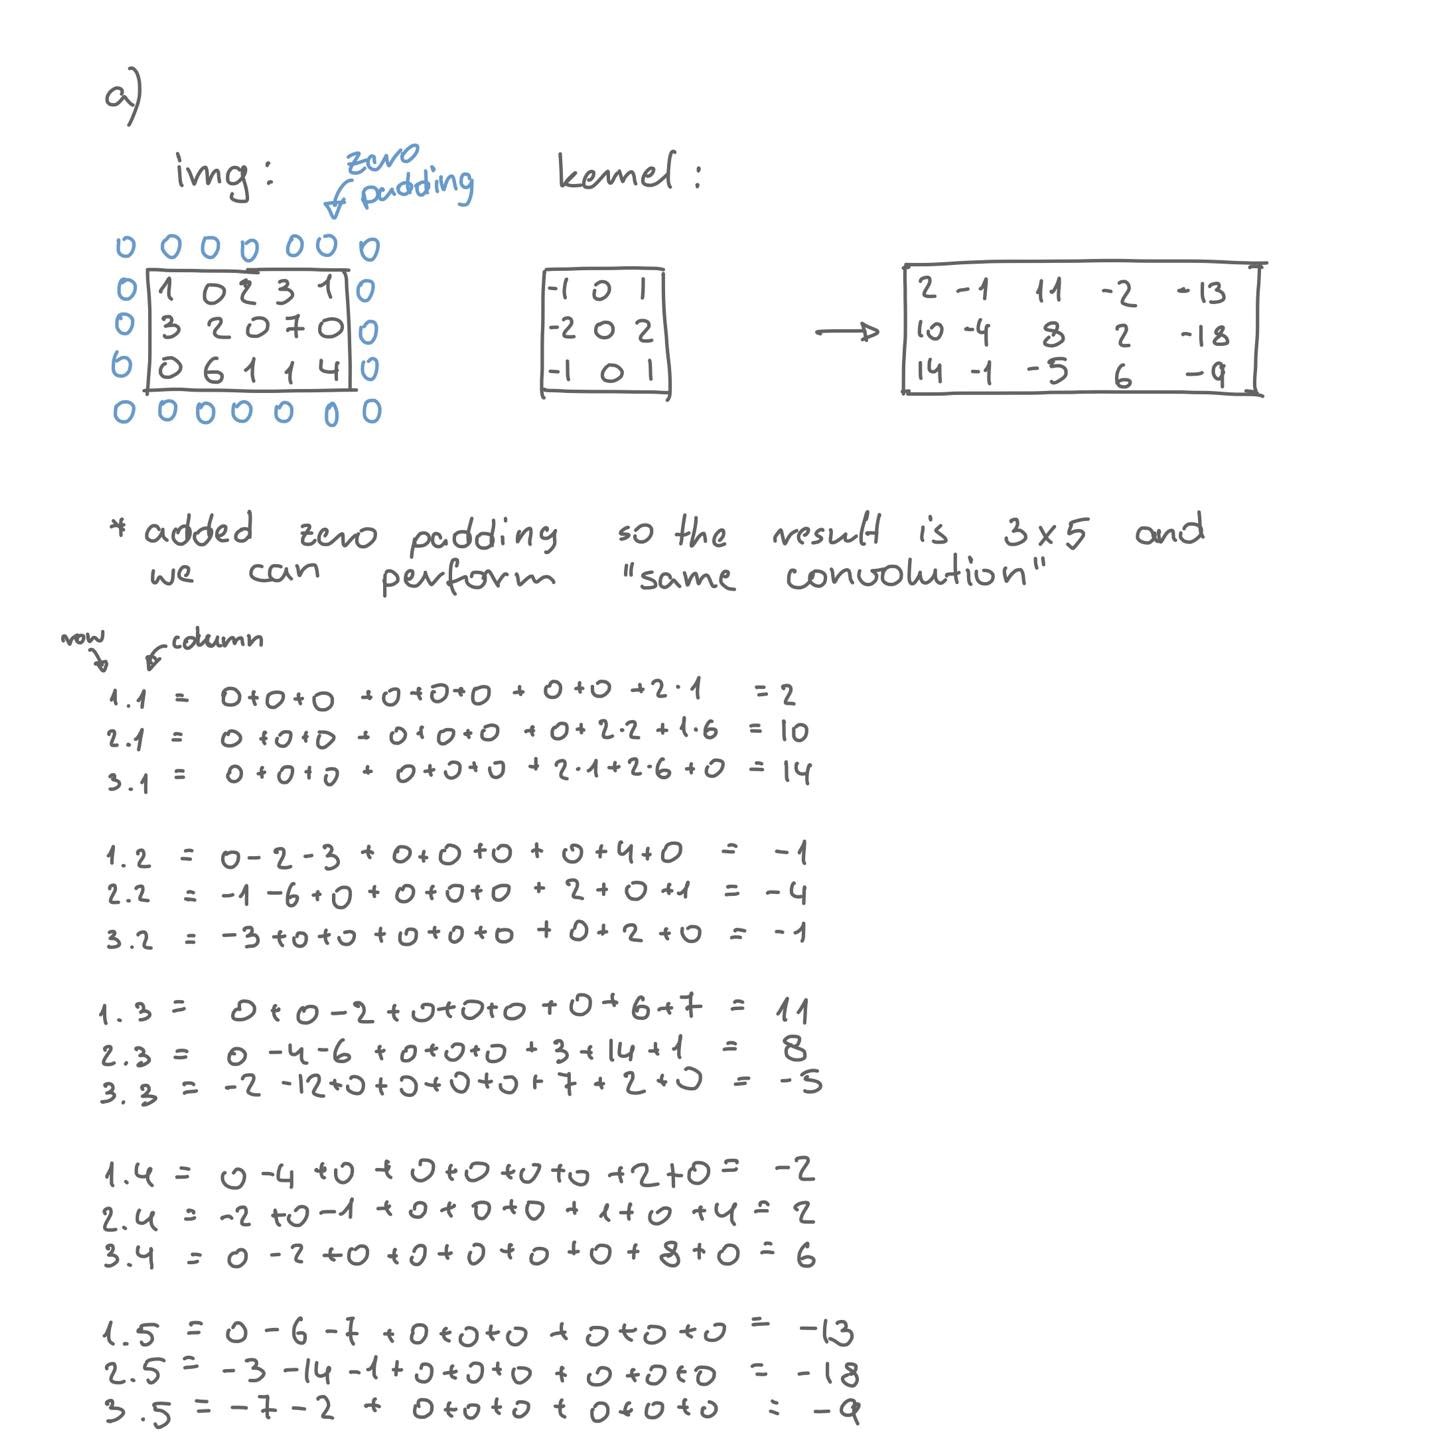 a)
img: zero padding kernel:
0 0 0 0 0 0 0
0 1 0 2 3 1 0 -1 0 1 2 -1 11 -2 -13
0 3 2 0 7 0 0 -2 0 2 → 10 -4 8 2 -18
0 0 6 1 1 4 0 -1 0 1 14 -1 -5 6 -9
0 0 0 0 0 0 0
* added zero padding so the result is 3x5 and
we can perform "same convolution"
row column
1.1 = 0+0+0 +0+0+0 + 0+0 +2·1 = 2
2.1 = 0+0+0 + 0+0+0 + 0+2·2+1·6 = 10
3.1 = 0+0+0 + 0+0+0 + 2·1+2·6+0 = 14
1.2 = 0-2-3 + 0+0+0 + 0+4+0 = -1
2.2 = -1-6+0 + 0+0+0 + 2+0+1 = -4
3.2 = -3+0+0 +0+0+0 + 0+2+0 = -1
1.3 = 0+0-2+0+0+0+0+6+7 = 11
2.3 = 0-4-6 + 0+0+0 + 3+14+1 = 8
3.3 = -2-12+0+0+0+0+7+2+0 = -5
1.4 = 0-4+0 + 0+0+0+0 +2+0 = -2
2.4 = -2+0-1 + 0+0+0 + 1+0+4 = 2
3.4 = 0-2+0 +0+0+0 +0+8+0 = 6
1.5 = 0-6-7 + 0+0+0 + 0+0+0 = -13
2.5 = -3-14-1+0+0+0 + 0+0+0 = -18
3.5 = -7-2 + 0+0+0 + 0+0+0 = -9